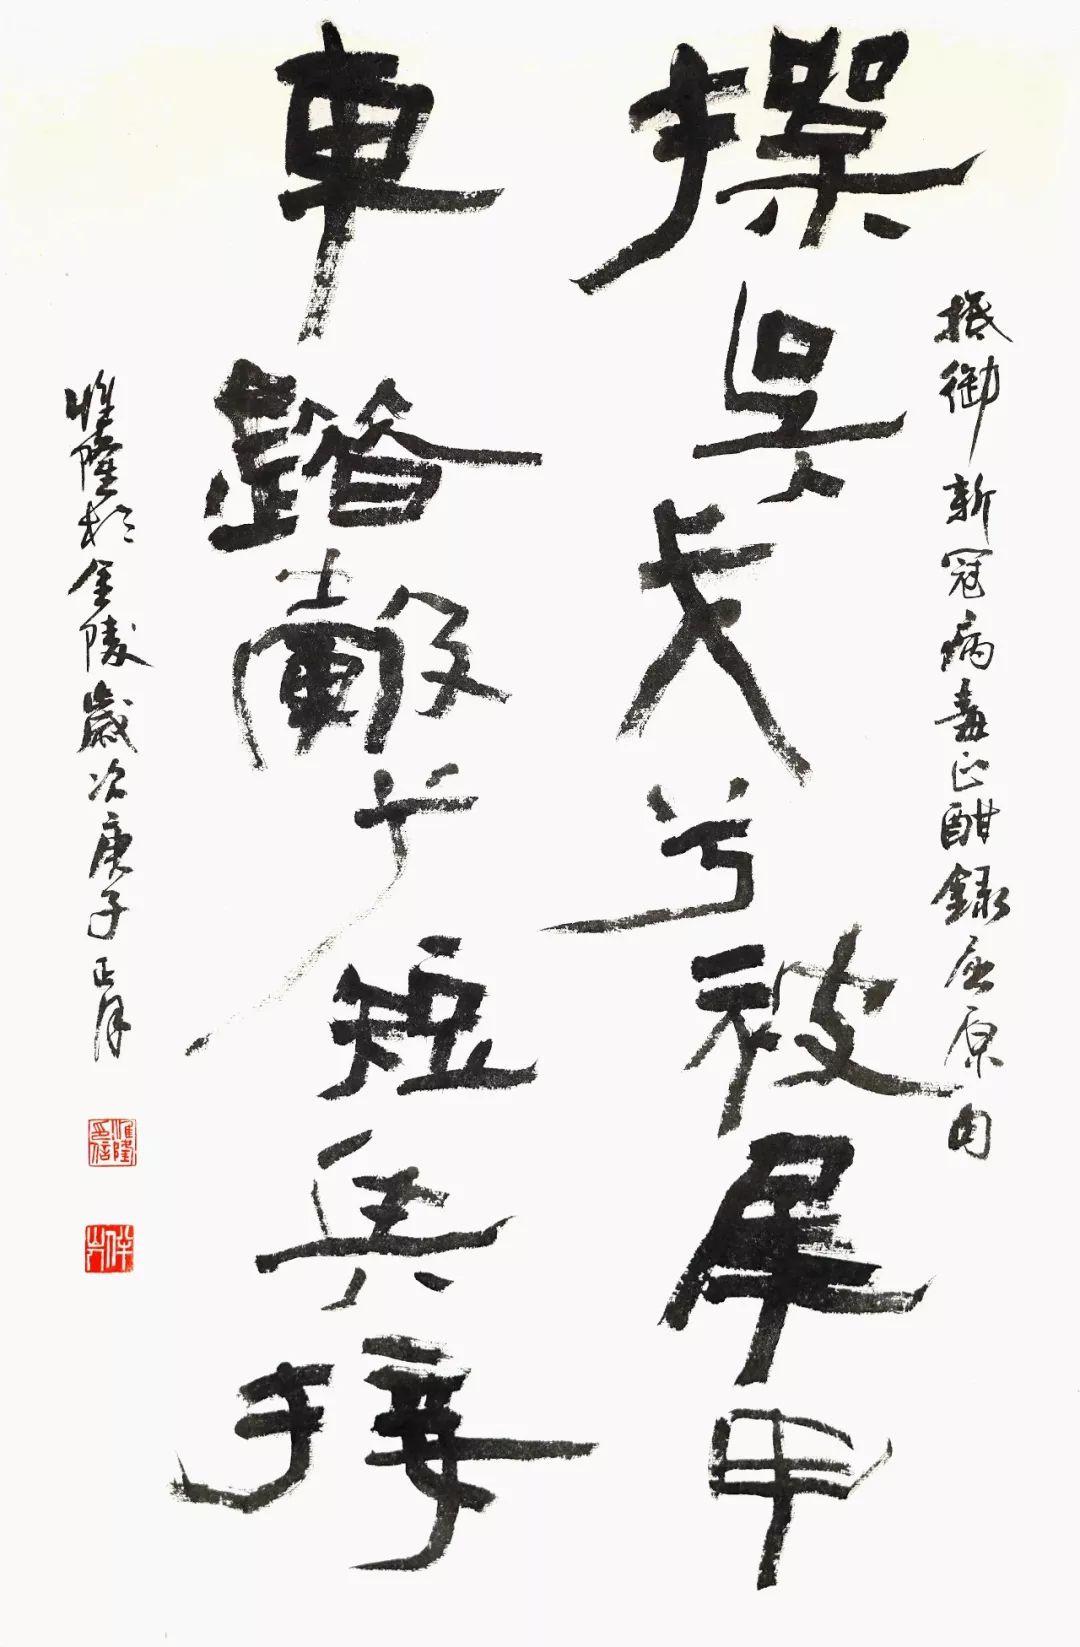 抵御新冠病毒正酣錄屈原句
操吳戈兮被犀甲
車錯轂兮短兵接
惟隆於金陵歲次庚子正月
惟隆印信